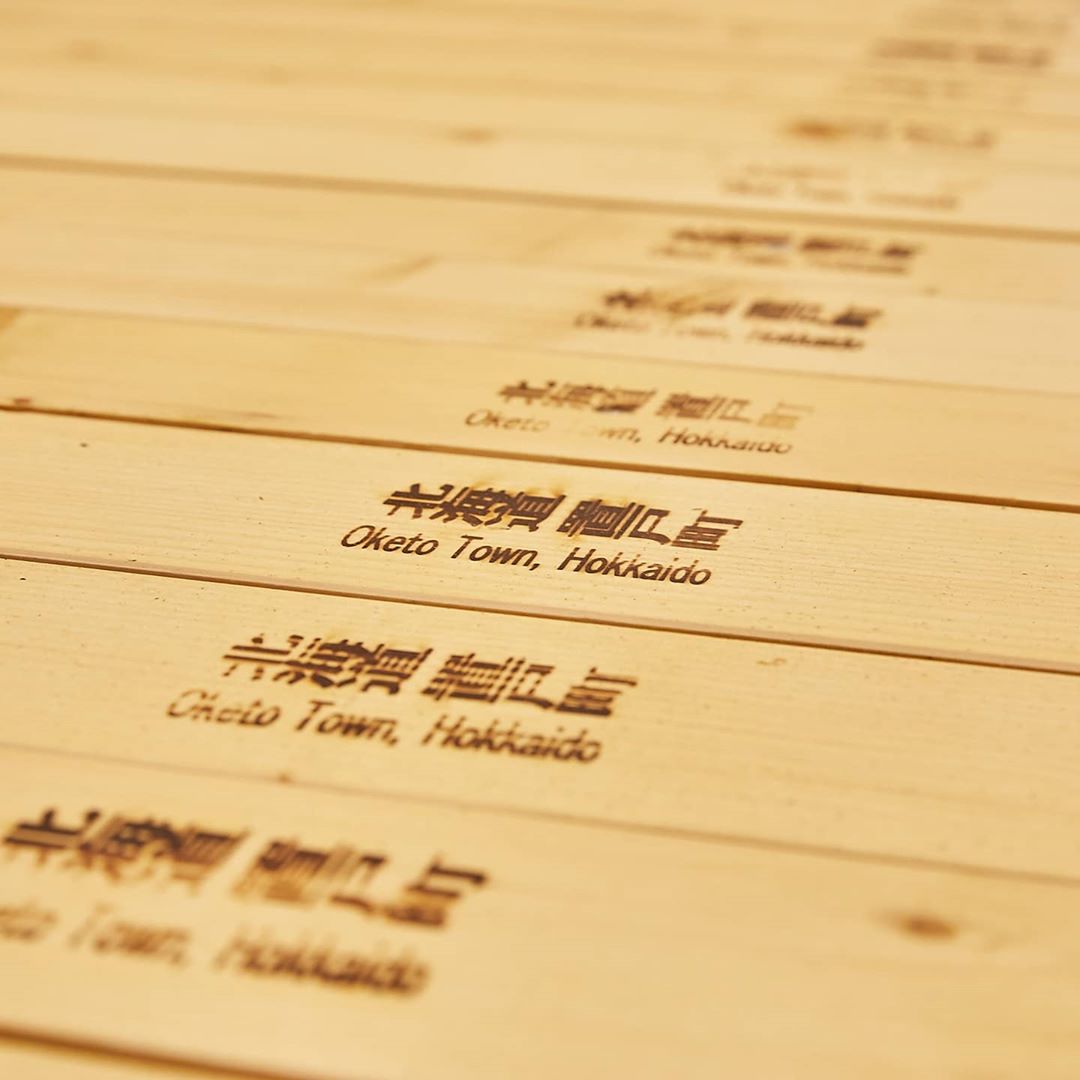 北海道 置戸町
Oketo Town, Hokkaido
北海道 置戸町
Oketo Town, Hokkaido
北海道 置戸町
Oketo Town, Hokkaido
北海道 置戸町
Oketo Town, Hokkaido
北海道 置戸町
Oketo Town, Hokkaido
北海道 置戸町
Town, Hokkaido